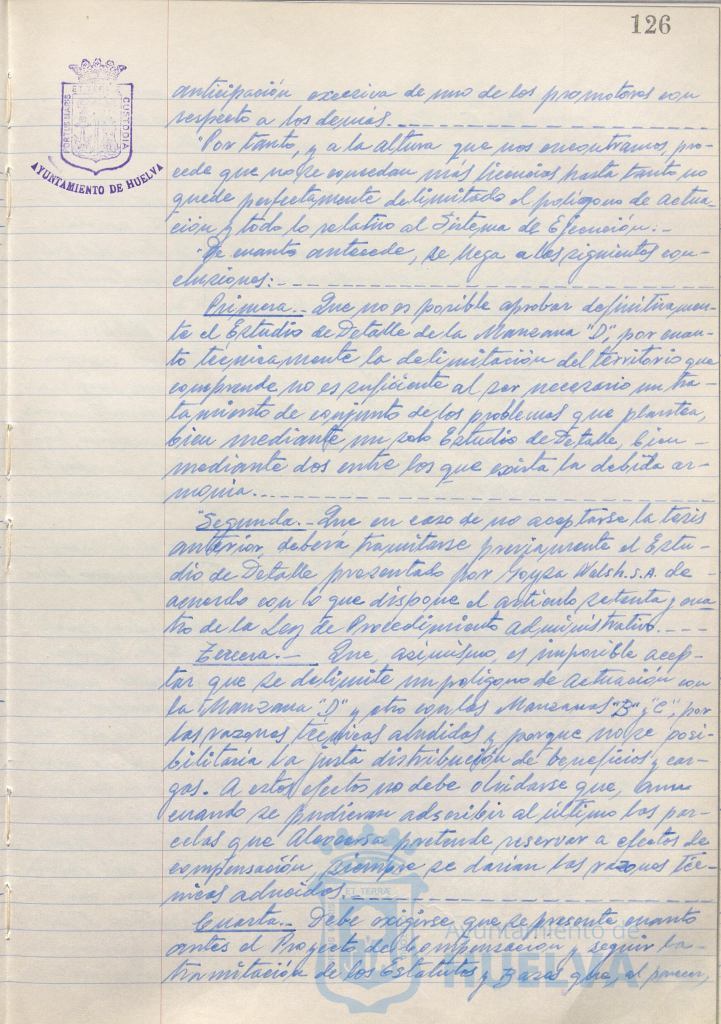 126
PORTUS MARIS
ET TERRAE
CUSTODIA
AYUNTAMIENTO DE HUELVA
anticipación excesiva de uno de los promotores con
respecto a los demás.
"Por tanto, y a la altura que nos encontramos, pro-
cede que no se concedan más licencias hasta tanto no
quede perfectamente delimitado el polígono de actua-
ción y todo lo relativo al Sistema de Ejecución.-
"De cuanto antecede, se llega a las siguientes con-
clusiones:
Primera.- Que no es posible aprobar definitivamen-
te el Estudio de Detalle de la Manzana "D", por cuan-
to técnicamente la delimitación del territorio que
comprende no es suficiente al ser necesario un tra-
tamiento de conjunto de los problemas que plantea,
bien mediante un solo Estudio de Detalle, bien
mediante dos entre los que exista la debida ar-
monía.
"Segunda.- Que en caso de no aceptarse la tesis
anterior, deberá tramitarse previamente el Estu-
dio de Detalle presentado por Welsh. S.A. de
acuerdo con lo que dispone el artículo setenta y cua-
tro de la Ley de Procedimiento administrativo.
Tercera.- Que, asimismo, es imposible acep-
tar que se delimite un polígono de actuación con
la Manzana "D" y otro con las Manzanas "B" y "C", por
las razones técnicas aludidas y porque no se posi-
bilitaría la justa distribución de beneficios y car-
gas. A estos efectos no debe olvidarse que, aun
cuando se pudieran adscribir al último las par-
celas que pretende reservar a efectos de
compensación, siempre se darían las razones téc-
nicas aducidas.
Cuarta.- Debe exigirse que se presente cuanto
antes el Proyecto de Compensación y seguir la
tramitación de los Estatutos y Bases que, al parecer,
ET TERRAE
Ayuntamiento de
HUELVA